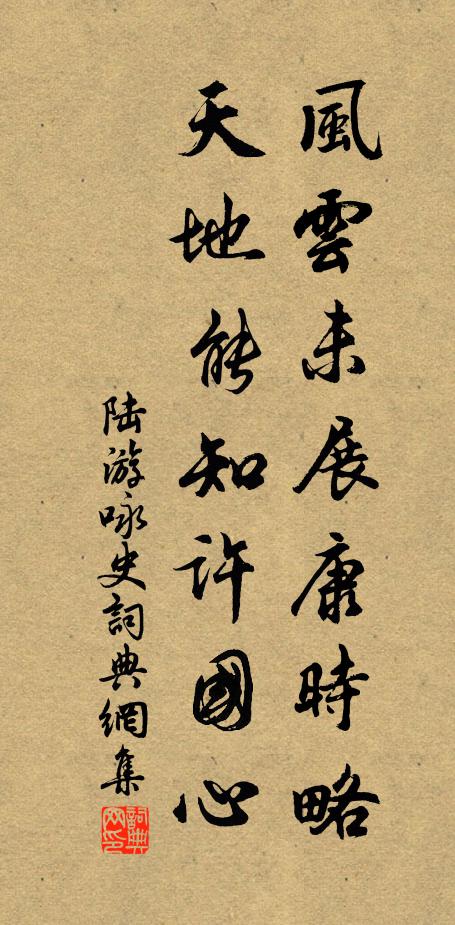 風雲未展康時略
天地能知許國心
陆游咏史詞典網集
詞典網印